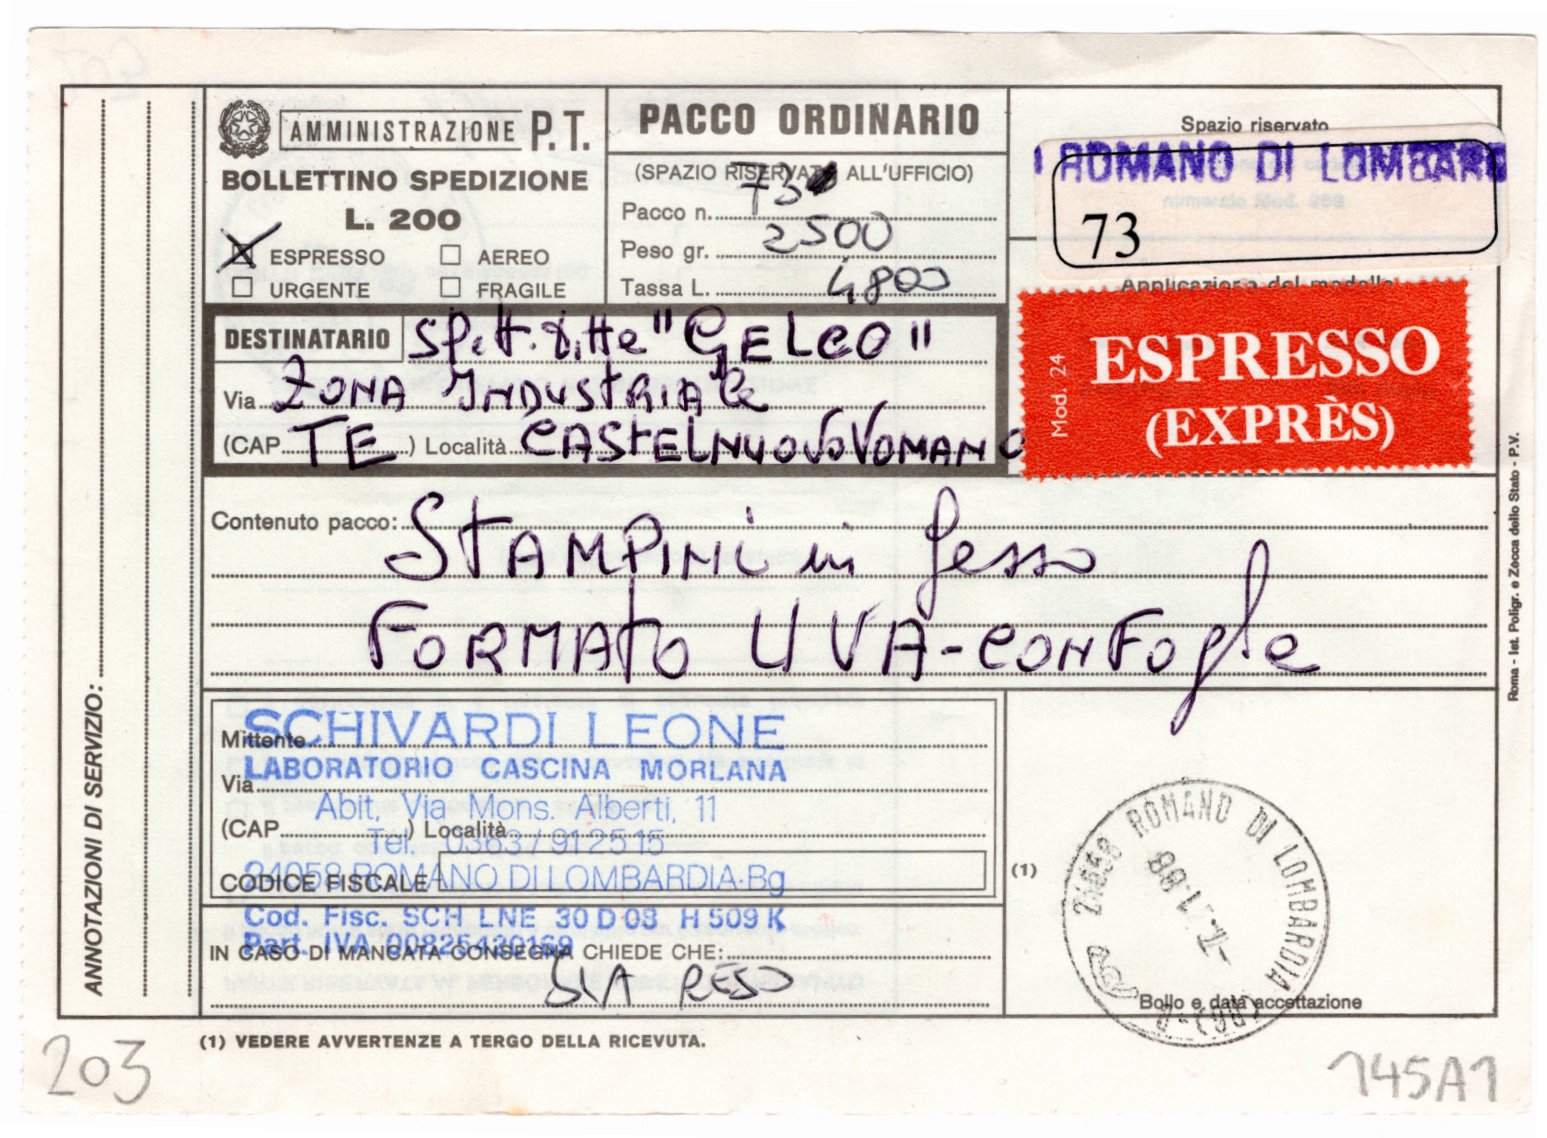 AMMINISTRAZIONE P.T.
BOLLETTINO SPEDIZIONE
L. 200
ESPRESSO
AEREO
URGENTE
FRAGILE
PACCO ORDINARIO
(SPAZIO RISERVATO ALL'UFFICIO)
Pacco n. 73
Peso gr. 2500
Tassa L. 4800
Spazio riservato
ROMANO DI LOMBARD
73
Applicazione del modello
Mod. 24
ESPRESSO
(EXPRÈS)
DESTINATARIO Spett. ditte "GELCO"
Via ZONA INDUSTRIALE
(CAP TE ) Località CASTELNUOVO VOMANO
Contenuto pacco: STAMPINI in gesso
FORMATO UVA-CON FOgle
Mittente SCHIVARDI LEONE
Via LABORATORIO CASCINA MORLANA
Abit. Via Mons. Alberti, 11
(CAP ) Località
Tel. 0363/912515
CODICE FISCALE
24058 ROMANO DI LOMBARDIA-Bg
Cod. Fisc. SCH LNE 30 D 08 H 509 K
Part. IVA 00825430169
IN CASO DI MANCATA CONSEGNA CHIEDE CHE:
SIA RESO
(1)
24058 ROMANO DI LOMBARDIA
(BG)
1.88
Bollo e data accettazione
ANNOTAZIONI DI SERVIZIO:
Roma - Ist. Poligr. e Zecca dello Stato - P.V.
(1) VEDERE AVVERTENZE A TERGO DELLA RICEVUTA.
203
145A1